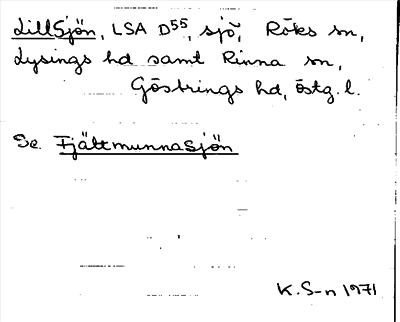 LillSjön, LSA D55, sjö, Röks sn,
Lysings hd samt Rinna sn,
Göstrings hd, östg. l.
Se. Fjättmunnasjön
K. S-n 1971